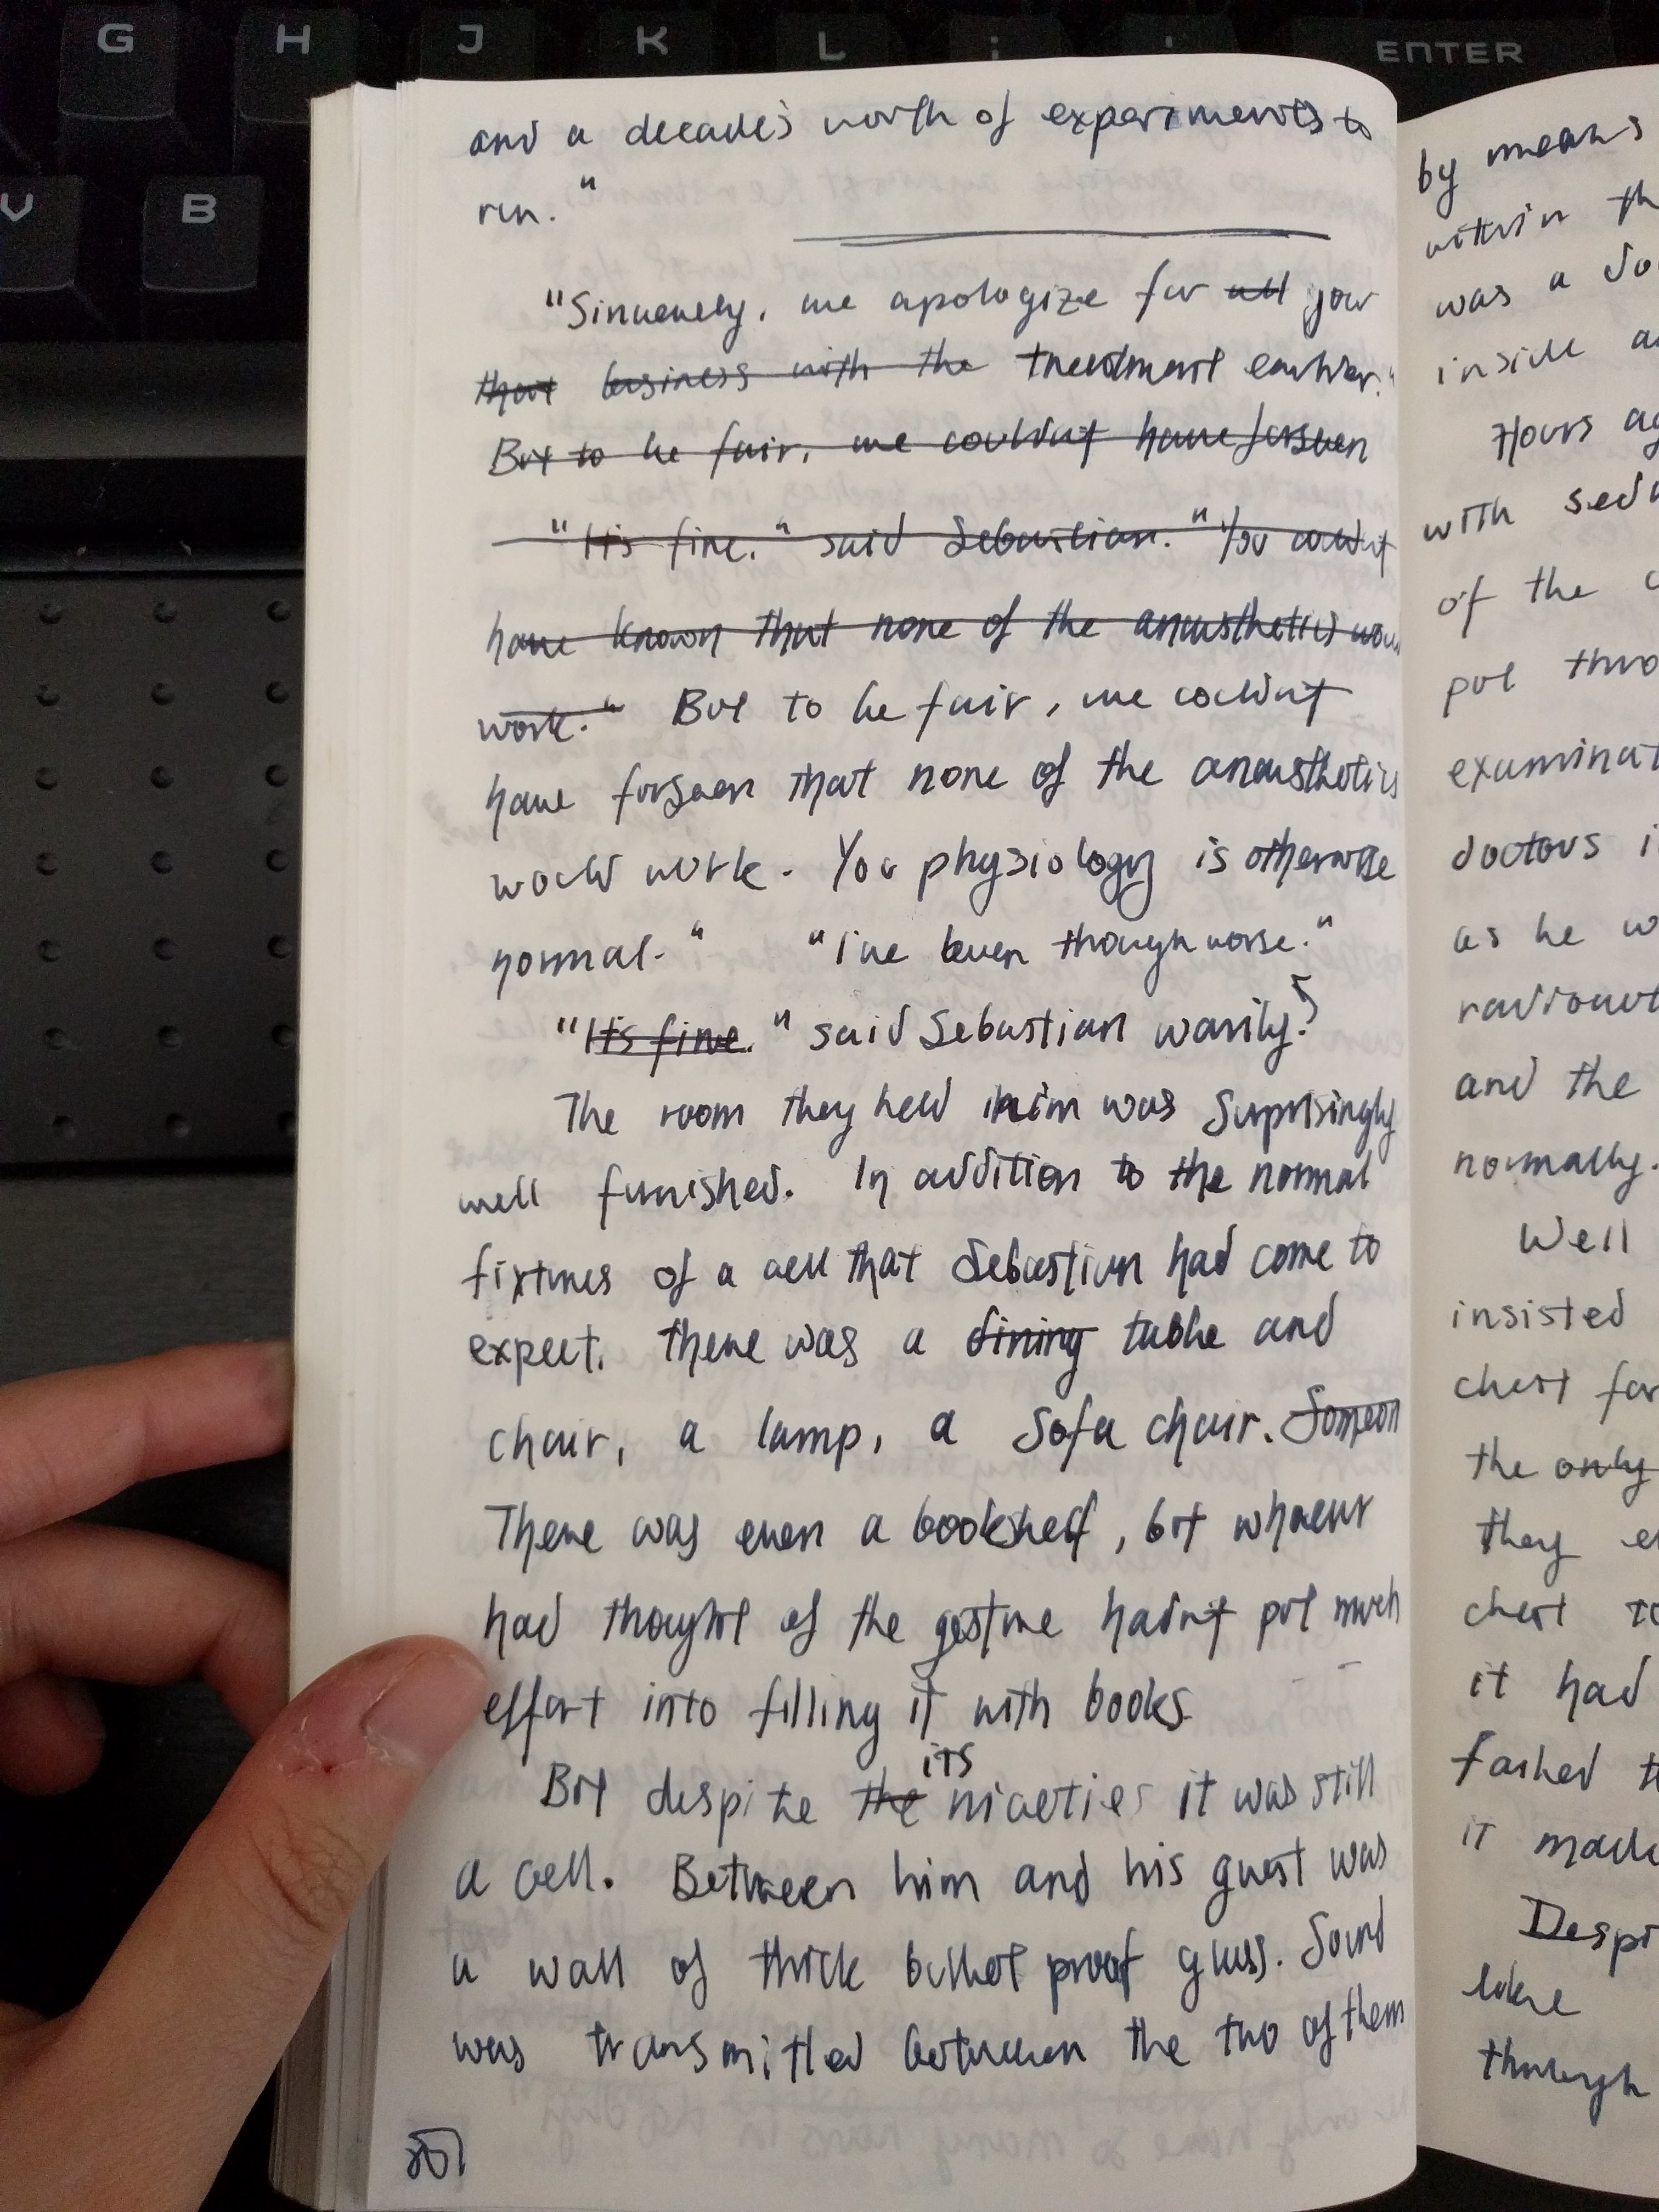 G H J K L ; ' ENTER
V B
and a decade's worth of experiments to
run."
"Sincerely, we apologize for all your
that business with the treatment earlier."
But to be fair, we couldn't have forseen
"It's fine." said Sebastian. "You couldn't
have known that none of the anaesthetics
work." But to be fair, we couldn't
have forseen that none of the anaesthetics
would work. You physiology is otherwise
normal." "I've been through worse."
"It's fine." said Sebastian warily.
The room they held him was surprisingly
well funished. In addition to the normal
fixtures of a cell that Sebastian had come to
expect, there was a dining table and
chair, a lamp, a sofa chair. Someon
There was even a bookshelf, but whoever
had thought of the gesture hadn't put much
effort into filling it with books.
its
But despite the niceties it was still
a cell. Between him and his guest was
a wall of thick bullet proof glass. Sound
was transmitted between the two of them
by means
within th
was a
inside
Hours ag
with
of the
put thro
examinat
doctors i
as he w
and the
normally.
Well
insisted
chest for
the only
they
chest to
it had
it made
Despi
through